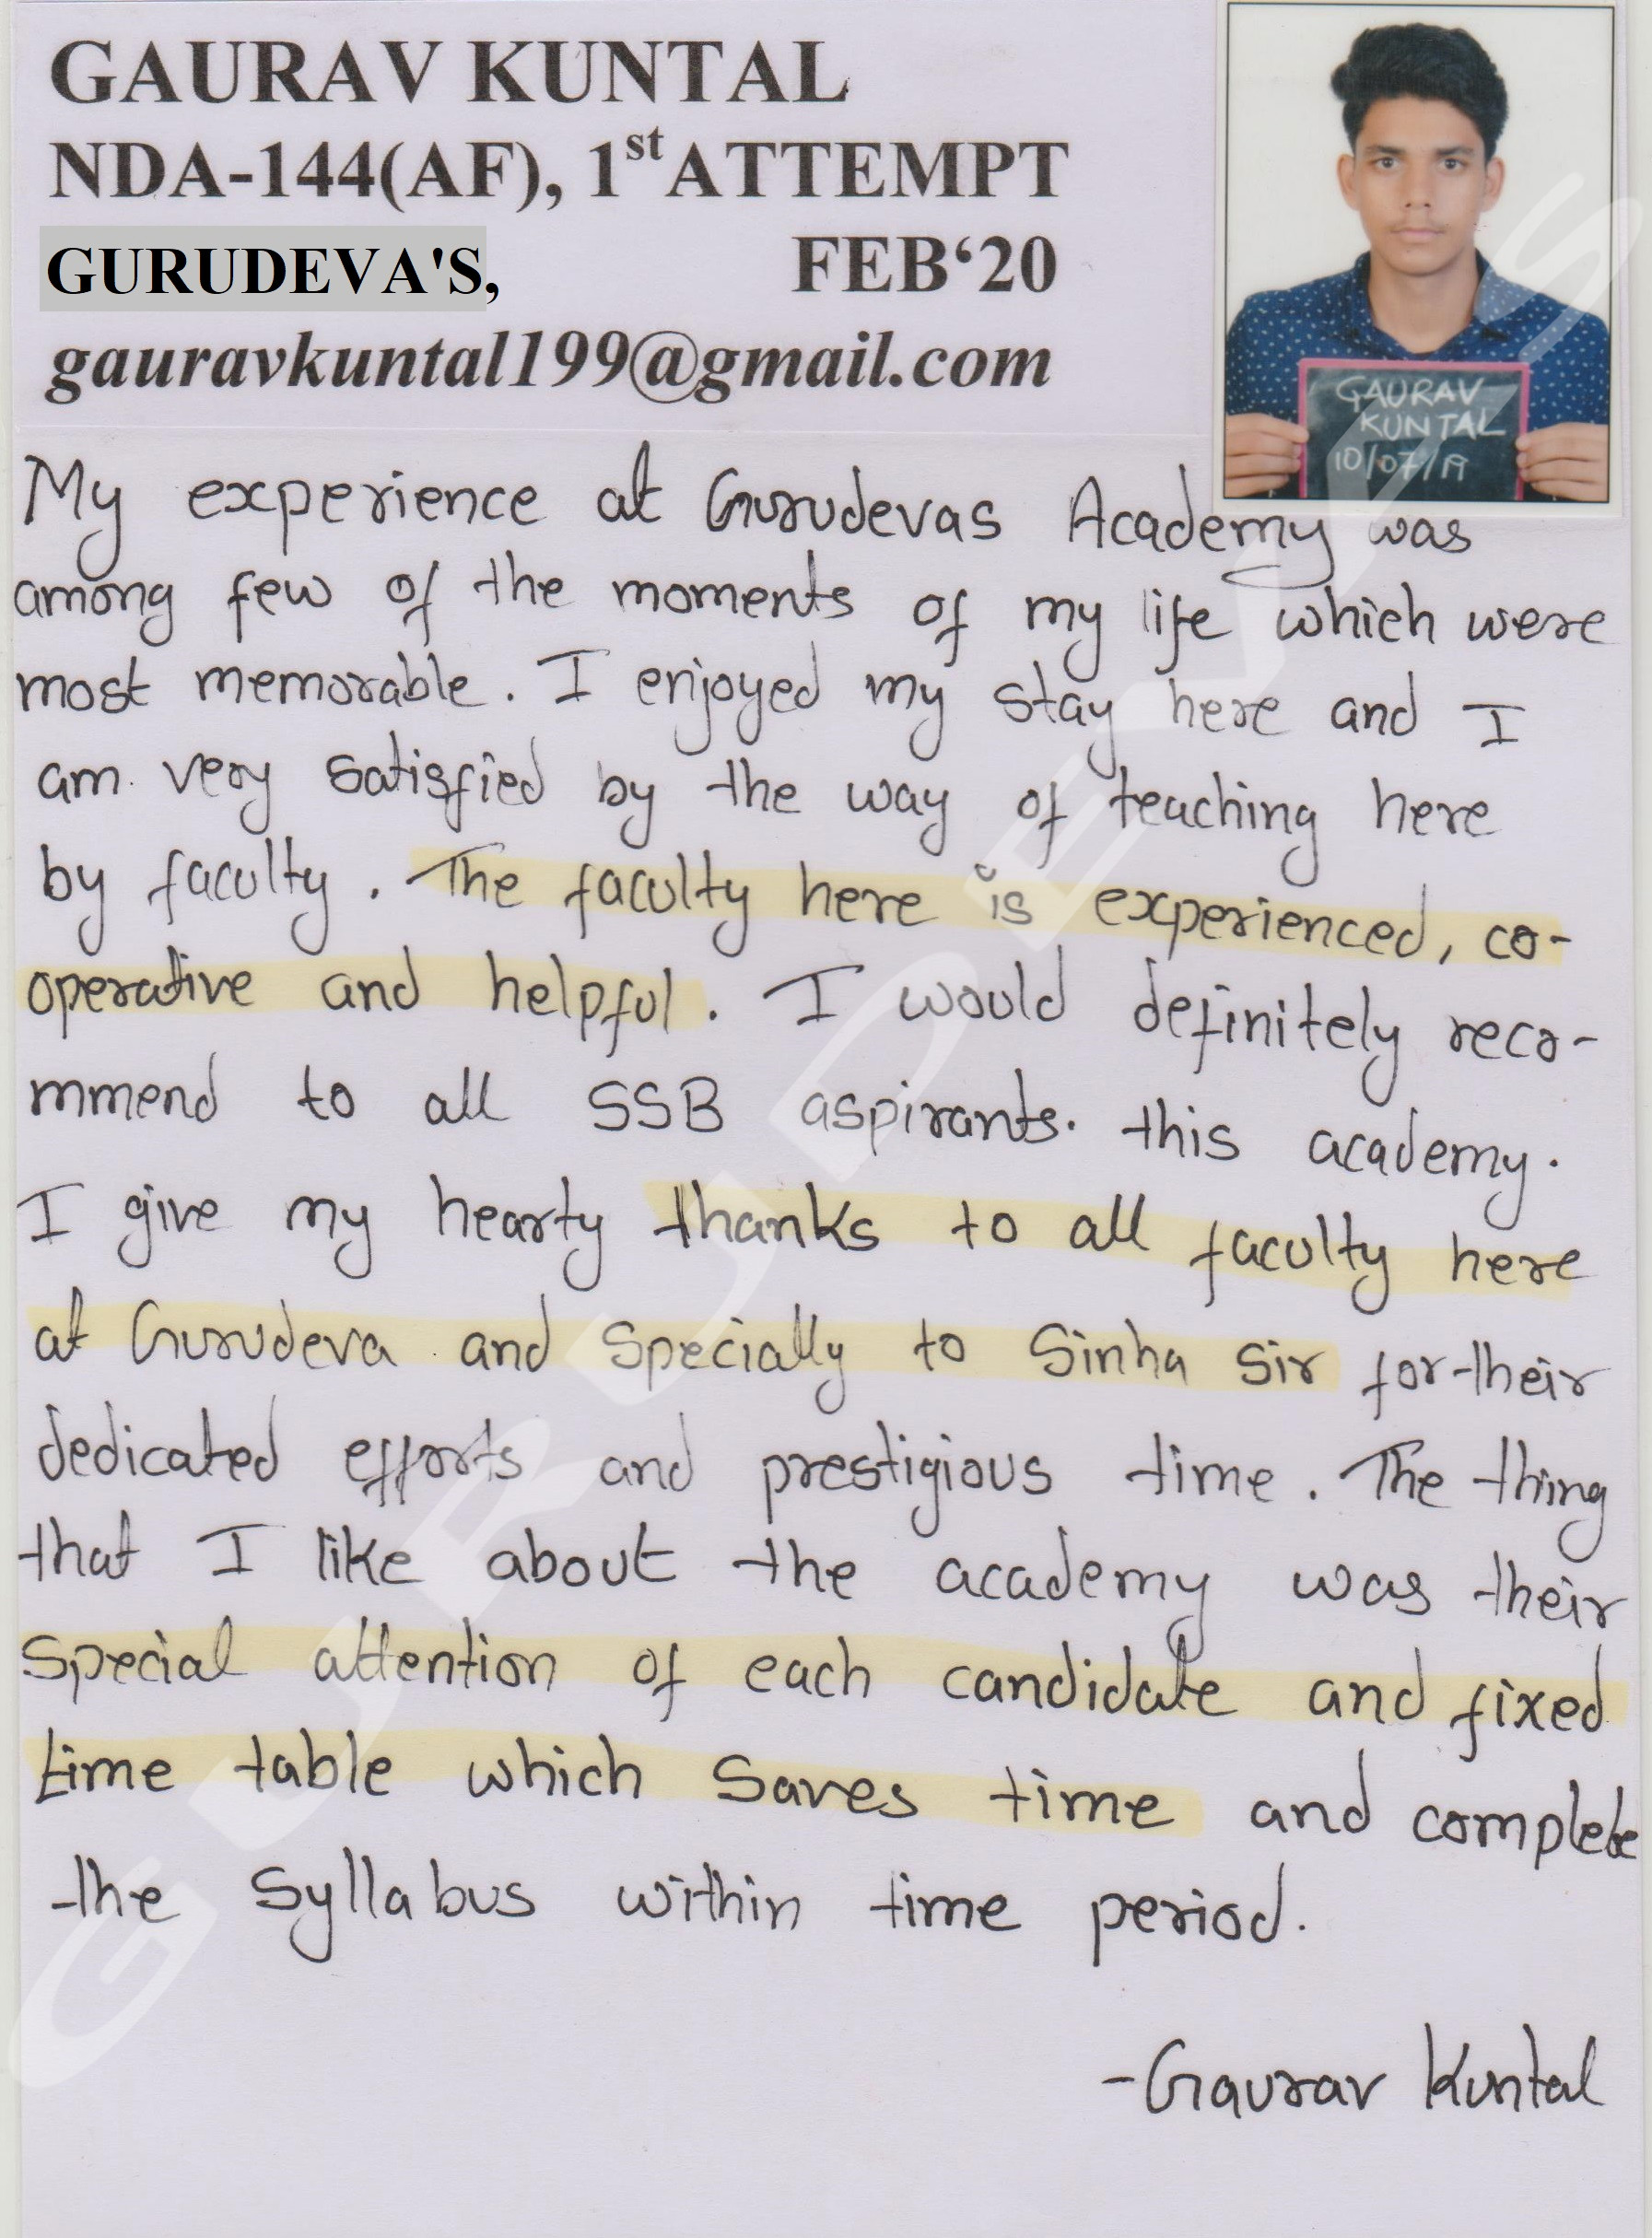 GAURAV KUNTAL
NDA-144(AF), 1st ATTEMPT
GURUDEVA'S, FEB‘20
gauravkuntal199@gmail.com
GAURAV
KUNTAL
10/07/19
My experience at Gurudevas Academy was
among few of the moments of my life which were
most memorable. I enjoyed my stay here and I
am very satisfied by the way of teaching here
by faculty. The faculty here is experienced, co-
operative and helpful. I would definitely reco-
mmend to all SSB aspirants. this academy.
I give my hearty thanks to all faculty here
at Gurudeva and Specially to Sinha Sir for their
dedicated efforts and prestigious time. The thing
that I like about the academy was their
Special attention of each candidate and fixed
time table which Saves time and complete
the Syllabus within time period.
-Gaurav Kuntal
GURUDEVAS